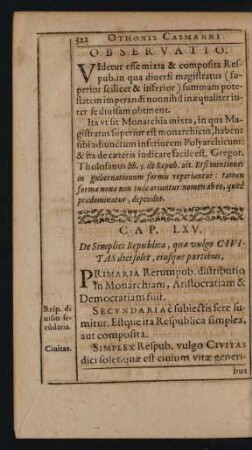 322 OTHONIS CASMANNI
OBSERVATIO.
VIdetur esse mixta & composita Res-
pub. in qua diversi magistratus (su-
perior scilicet & inferior) summam pote-
statem imperandi non nihil inæqualiter in-
ter se divisam obtinent.
Ita vt sit Monarchia mixta, in qua Ma-
gistratus superior est monarchicus, habens
sibi adiunctum inferiorem Polyarchicum:
& ita de cæteris iudicare facile est. Gregor.
Tholosanus lib. 5. de Repub. ait. Etsi mixtiones
in gubernationum formis reperiantur: tamen
forma noua non inde oriuntur. nomen ab eo, quod
prædominatur, dependet.
CAP. LXV.
De Simplici Republica, quæ vulgo CIVI-
TAS dici solet, eiusque partibus.
PRIMARIA Rerumpub. distributio
in Monarchiam, Aristocratiam &
Democratiam fuit.
Reip. di
uisio se-
cundaria.
SECVNDARIA è subiectis fere su-
mitur. Estque ita Respublica simplex,
aut composita.
Ciuitas.
SIMPLEX Respub. vulgo CIVITAS
dici solet, quæ est ciuium vitæ generi-
bus